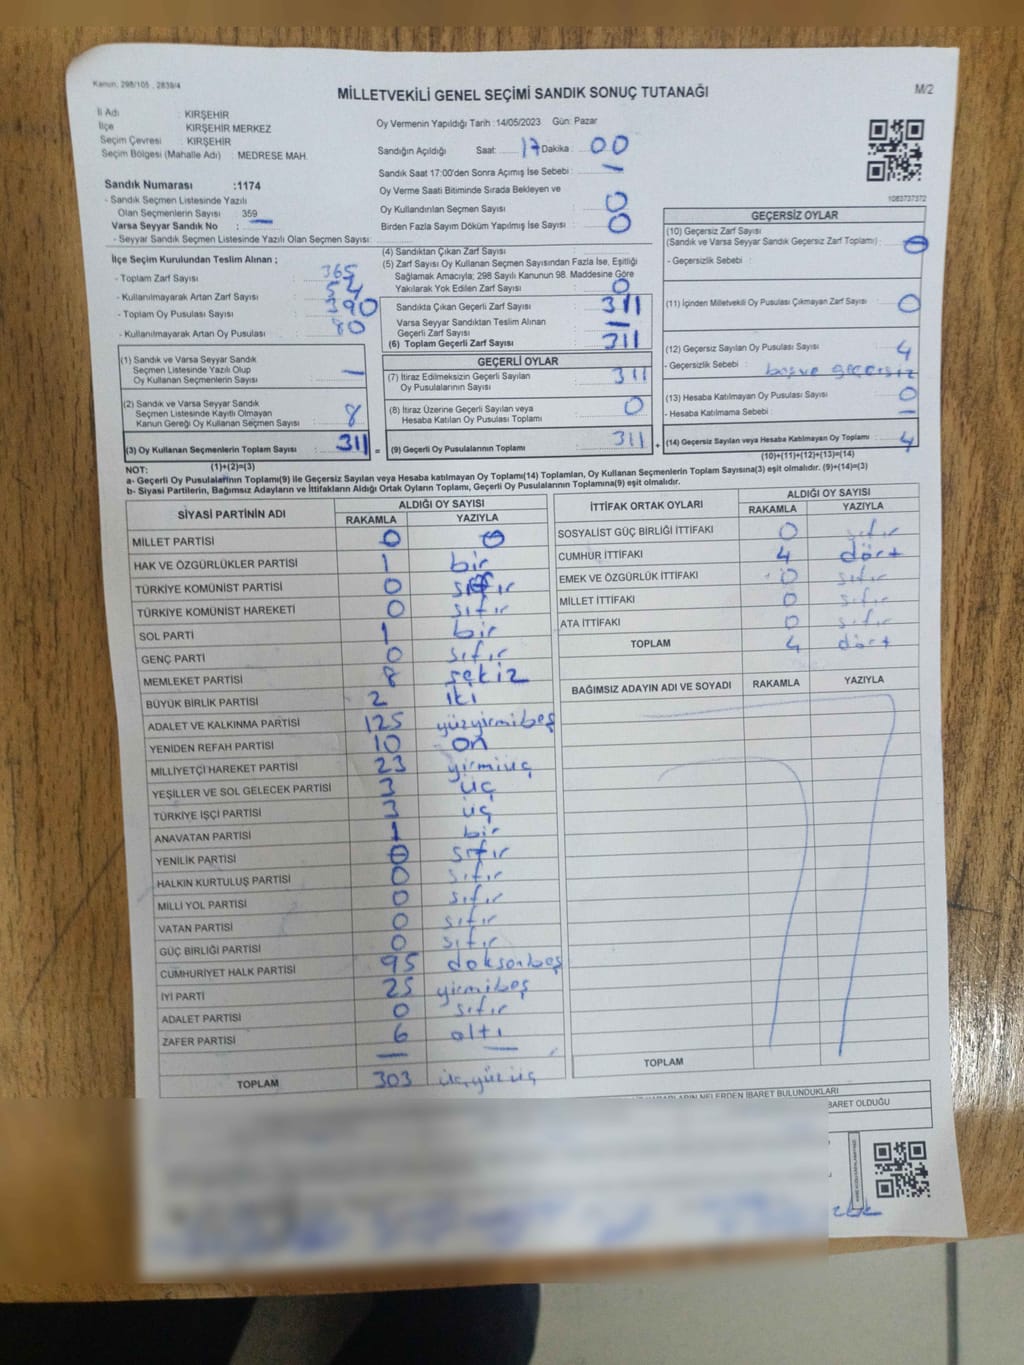 Kanun: 298/105 , 2839/4
MİLLETVEKİLİ GENEL SEÇİMİ SANDIK SONUÇ TUTANAĞI
M/2
İl Adı : KIRŞEHİR
İlçe : KIRŞEHİR MERKEZ
Seçim Çevresi : KIRŞEHİR
Seçim Bölgesi (Mahalle Adı) : MEDRESE MAH.
Sandık Numarası :1174
- Sandık Seçmen Listesinde Yazılı
Olan Seçmenlerin Sayısı 359
Varsa Seyyar Sandık No :
- Seyyar Sandık Seçmen Listesinde Yazılı Olan Seçmen Sayısı :
Oy Vermenin Yapıldığı Tarih :14/05/2023 Gün: Pazar
Sandığın Açıldığı Saat: 17 Dakika : 00
Sandık Saat 17:00'den Sonra Açımış İse Sebebi : —
Oy Verme Saati Bitiminde Sırada Bekleyen ve
Oy Kullandırılan Seçmen Sayısı : 0
Birden Fazla Sayım Döküm Yapılmış İse Sayısı : 0
1083737372
İlçe Seçim Kurulundan Teslim Alınan ;
- Toplam Zarf Sayısı : 365
- Kullanılmayarak Artan Zarf Sayısı : 54
- Toplam Oy Pusulası Sayısı : 390
- Kullanılmayarak Artan Oy Pusulası : 80
(1) Sandık ve Varsa Seyyar Sandık
Seçmen Listesinde Yazılı Olup
Oy Kullanan Seçmenlerin Sayısı : —
(2) Sandık ve Varsa Seyyar Sandık
Seçmen Listesinde Kayıtlı Olmayan
Kanun Gereği Oy Kullanan Seçmen Sayısı : 8
(3) Oy Kullanan Seçmenlerin Toplam Sayısı : 311
(1)+(2)=(3)
(4) Sandıktan Çıkan Zarf Sayısı :
(5) Zarf Sayısı Oy Kullanan Seçmen Sayısından Fazla İse, Eşitliği
Sağlamak Amacıyla; 298 Sayılı Kanunun 98. Maddesine Göre
Yakılarak Yok Edilen Zarf Sayısı : 0
Sandıkta Çıkan Geçerli Zarf Sayısı : 311
Varsa Seyyar Sandıktan Teslim Alınan
Geçerli Zarf Sayısı : —
(6) Toplam Geçerli Zarf Sayısı : 311
GEÇERLİ OYLAR
(7) İtiraz Edilmeksizin Geçerli Sayılan
Oy Pusulasının Sayısı : 311
(8) İtiraz Üzerine Geçerli Sayılan veya
Hesaba Katılan Oy Pusulası Toplamı : 0
= (9) Geçerli Oy Pusulalarının Toplamı : 311
GEÇERSİZ OYLAR
(10) Geçersiz Zarf Sayısı
(Sandık ve Varsa Seyyar Sandık Geçersiz Zarf Toplamı) : 0
- Geçersizlik Sebebi :
(11) İçinden Milletvekili Oy Pusulası Çıkmayan Zarf Sayısı : 0
(12) Geçersiz Sayılan Oy Pusulası Sayısı : 4
- Geçersizlik Sebebi : boş ve geçersiz
(13) Hesaba Katılmayan Oy Pusulası Sayısı : 0
- Hesaba Katılmama Sebebi : —
+ (14) Geçersiz Sayılan veya Hesaba Katılmayan Oy Toplamı : 4
(10)+(11)+(12)+(13)=(14)
NOT:
a- Geçerli Oy Pusulalarının Toplamı(9) ile Geçersiz Sayılan veya Hesaba katılmayan Oy Toplamı(14) Toplamları, Oy Kullanan Seçmenlerin Toplam Sayısına(3) eşit olmalıdır. (9)+(14)=(3)
b- Siyasi Partilerin, Bağımsız Adayların ve İttifakların Aldığı Ortak Oyların Toplamı, Geçerli Oy Pusulalarının Toplamına(9) eşit olmalıdır.
SİYASİ PARTİNİN ADI ALDIĞI OY SAYISI
RAKAMLA YAZIYLA
MİLLET PARTİSİ 0 0
HAK VE ÖZGÜRLÜKLER PARTİSİ 1 bir
TÜRKİYE KOMÜNİST PARTİSİ 0 sıfır
TÜRKİYE KOMÜNİST HAREKETİ 0 sıfır
SOL PARTİ 1 bir
GENÇ PARTİ 0 sıfır
MEMLEKET PARTİSİ 8 sekiz
BÜYÜK BİRLİK PARTİSİ 2 iki
ADALET VE KALKINMA PARTİSİ 125 yüzyirmibeş
YENİDEN REFAH PARTİSİ 10 on
MİLLİYETÇİ HAREKET PARTİSİ 23 yirmiüç
YEŞİLLER VE SOL GELECEK PARTİSİ 3 üç
TÜRKİYE İŞÇİ PARTİSİ 3 üç
ANAVATAN PARTİSİ 1 bir
YENİLİK PARTİSİ 0 sıfır
HALKIN KURTULUŞ PARTİSİ 0 sıfır
MİLLİ YOL PARTİSİ 0 sıfır
VATAN PARTİSİ 0 sıfır
GÜÇ BİRLİĞİ PARTİSİ 0 sıfır
CUMHURİYET HALK PARTİSİ 95 doksanbeş
İYİ PARTİ 25 yirmibeş
ADALET PARTİSİ 0 sıfır
ZAFER PARTİSİ 6 altı
— —
TOPLAM 303 üçyüzüç
İTTİFAK ORTAK OYLARI ALDIĞI OY SAYISI
RAKAMLA YAZIYLA
SOSYALİST GÜÇ BİRLİĞİ İTTİFAKI 0 sıfır
CUMHUR İTTİFAKI 4 dört
EMEK VE ÖZGÜRLÜK İTTİFAKI 0 sıfır
MİLLET İTTİFAKI 0 sıfır
ATA İTTİFAKI 0 sıfır
TOPLAM 4 dört
BAĞIMSIZ ADAYIN ADI VE SOYADI RAKAMLA YAZIYLA
TOPLAM
NELERDEN İBARET BULUNDUKLARI
BARET OLDUĞU